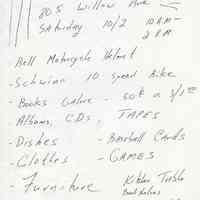 805 Willow Ave
Saturday 10/2 10 AM-
2 PM
Bell Motorcycle Helmet
- Schwinn 10 Speed Bike
- Books Galore - 50¢ a 3/1.00
Albums, CDs, TAPES
- Dishes - Baseball Cards
- Clothes - GAMES
- Furniture Kitchen Table
Bookshelves